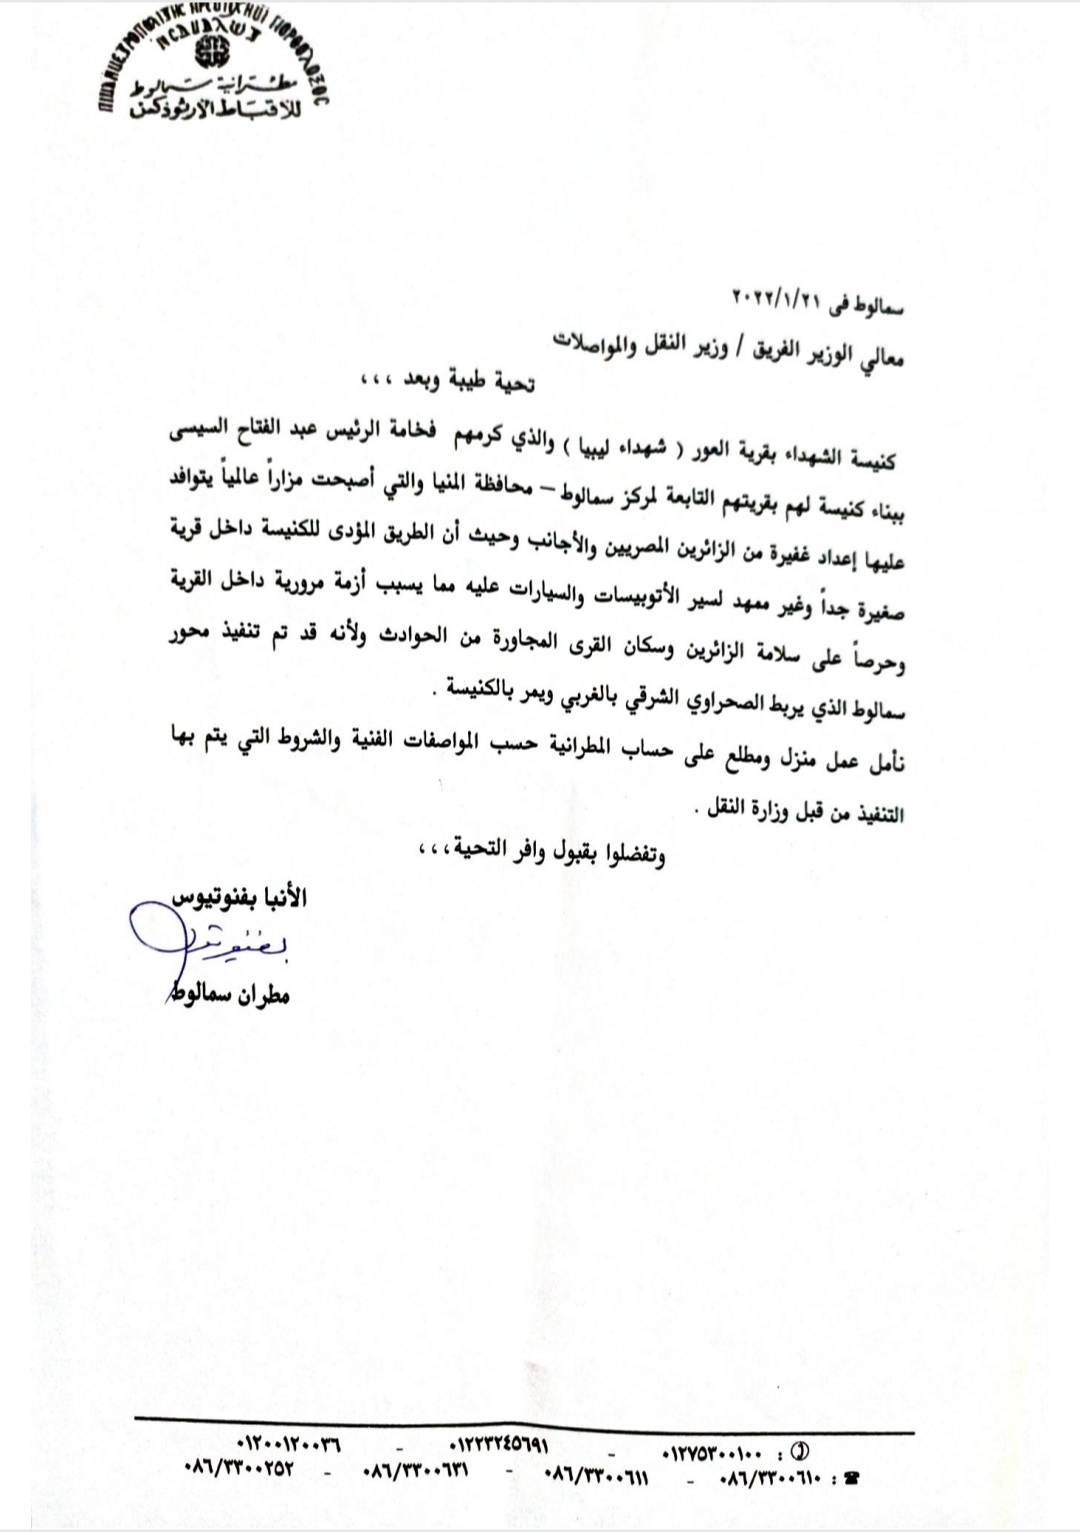 مطرانية سمالوط
للأقباط الأرثوذكس
سمالوط فى ٢٠٢٢/١/٢١
معالي الوزير الفريق / وزير النقل والمواصلات
تحية طيبة وبعد ،،،
كنيسة الشهداء بقرية العور ( شهداء ليبيا ) والذي كرمهم فخامة الرئيس عبد الفتاح السيسى
ببناء كنيسة لهم بقريتهم التابعة لمركز سمالوط – محافظة المنيا والتي أصبحت مزاراً عالمياً يتوافد
عليها إعداد غفيرة من الزائرين المصريين والأجانب وحيث أن الطريق المؤدى للكنيسة داخل قرية
صغيرة جداً وغير ممهد لسير الأتوبيسات والسيارات عليه مما يسبب أزمة مرورية داخل القرية
وحرصاً على سلامة الزائرين وسكان القرى المجاورة من الحوادث ولأنه قد تم تنفيذ محور
سمالوط الذي يربط الصحراوي الشرقي بالغربي ويمر بالكنيسة .
نأمل عمل منزل ومطلع على حساب المطرانية حسب المواصفات الفنية والشروط التي يتم بها
التنفيذ من قبل وزارة النقل .
وتفضلوا بقبول وافر التحية،،،
الأنبا بفنوتيوس
بفنوتيوس
مطران سمالوط
✆ : ٠١٢٧٥٣٠٠١٠٠ - ٠١٢٢٣٢٤٥٦٩١ - ٠١٢٠٠١٢٠٠٣٦
☎ : ٠٨٦/٣٣٠٠٦١٠ - ٠٨٦/٣٣٠٠٦١١ - ٠٨٦/٣٣٠٠٦٣١ - ٠٨٦/٣٣٠٠٢٥٢